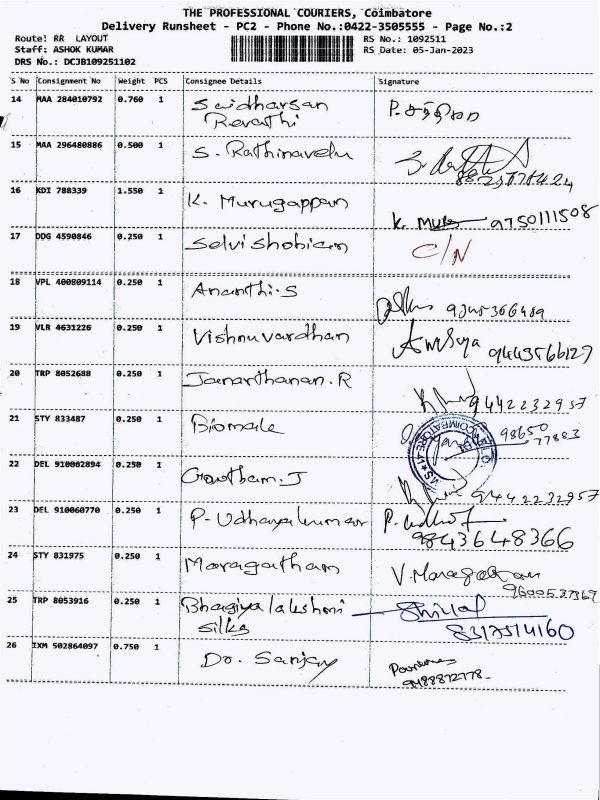 THE PROFESSIONAL COURIERS, Coimbatore
Delivery Runsheet - PC2 - Phone No.:0422-3505555 - Page No.:2
Route! RR LAYOUT RS No.: 1092511
Staff: ASHOK KUMAR RS Date: 05-Jan-2023
DRS No.: DCJB109251102
S No Consignment No Weight PCS Consignee Details Signature
14 MAA 284010792 0.760 1 Saidharsan
Revathi
15 MAA 296480886 0.500 1 S. Rathinavelu
16 KDI 788339 1.550 1 K. Murugappan
9750111508
17 DDG 4590846 0.250 1 Selvishobiam C/N
18 VPL 400809114 0.250 1 Ananthi.S
19 VLR 4631226 0.250 1 Vishnuvardhan
20 TRP 8052688 0.250 1 Janarthanan.R
9442232957
21 STY 833487 0.250 1 98650
77883
22 DEL 910002894 0.250 1 Gowtham.J
9442232957
23 DEL 910060770 0.250 1 P. Udhayakumar
9843648366
24 STY 831975 0.250 1 Maragatham
25 TRP 8053916 0.250 1 Bhagiyalakshmi
Silks
26 IXM 502864097 0.750 1 Dr. Sanjay